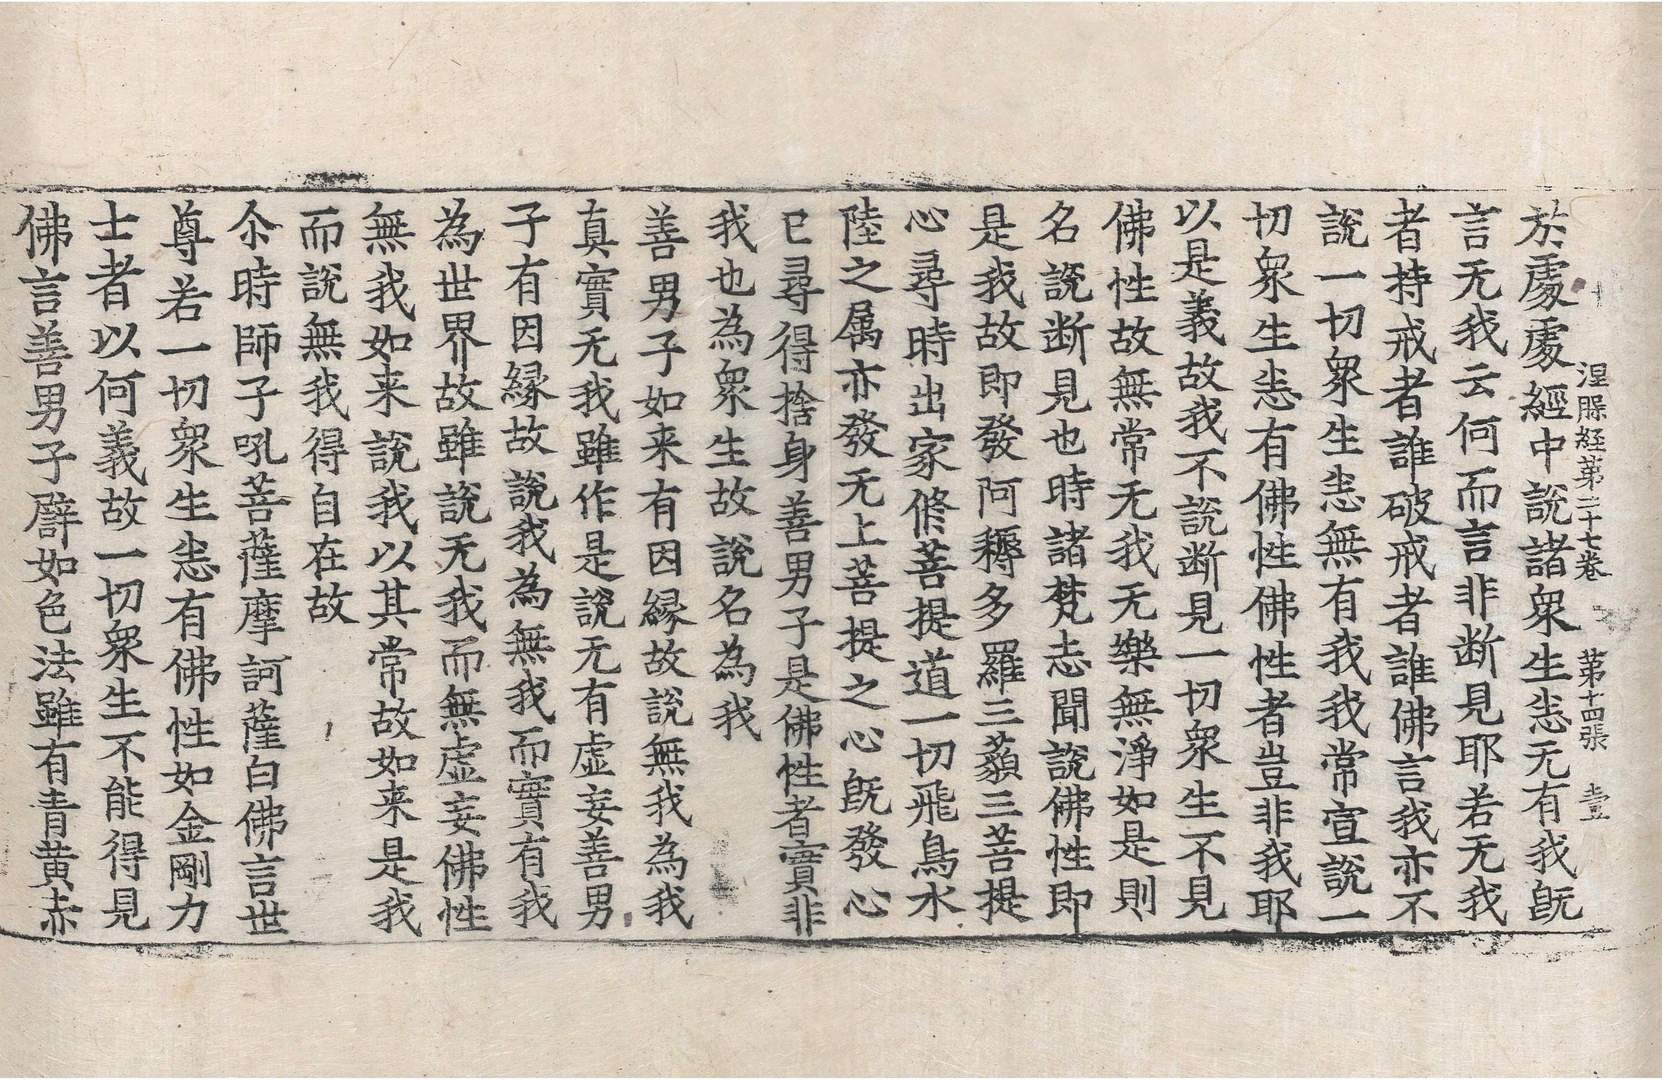 涅槃経第二十七巻　第十四張　壹
於處處經中說諸衆生悉无有我既
言无我云何而言非断見耶若无我
者持戒者誰破戒者誰佛言我亦不
說一切衆生悉無有我我常宣說一
切衆生悉有佛性佛性者豈非我耶
以是義故我不說断見一切衆生不見
佛性故無常无我无樂無淨如是則
名說断見也時諸梵志聞說佛性即
是我故即發阿耨多羅三藐三菩提
心尋時出家修菩提道一切飛鳥水
陸之属亦發无上菩提之心既發心
已尋得捨身善男子是佛性者實非
我也為衆生故說名為我
善男子如来有因縁故說無我為我
真實无我雖作是說无有虚妄善男
子有因縁故說我為無我而實有我
為世界故雖說无我而無虚妄佛性
無我如来說我以其常故如来是我
而說無我得自在故
尒時師子吼菩薩摩訶薩白佛言世
尊若一切衆生悉有佛性如金剛力
士者以何義故一切衆生不能得見
佛言善男子譬如色法雖有青黄赤